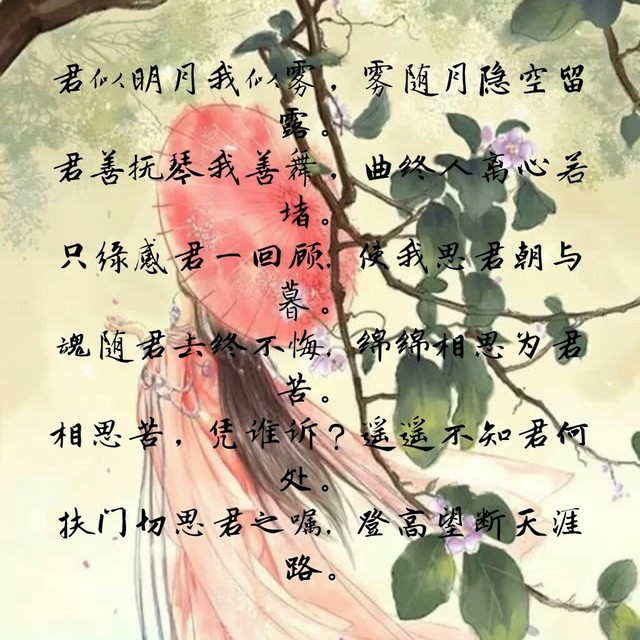 君似明月我似雾，雾随月隐空留
露。
君善抚琴我善舞，曲终人离心若
堵。
只缘感君一回顾，使我思君朝与
暮。
魂随君去终不悔，绵绵相思为君
苦。
相思苦，凭谁诉？遥遥不知君何
处。
扶门切思君之嘱，登高望断天涯
路。